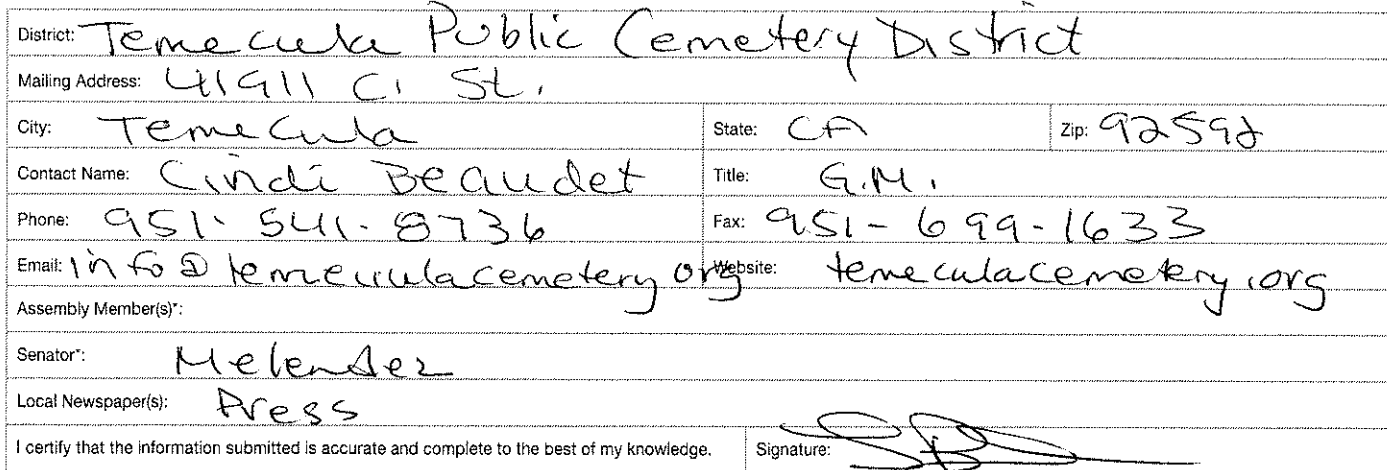 District: Temecula Public Cemetery District
Mailing Address: 41911 C. St.
City: Temecula State: CA Zip: 92592
Contact Name: Cindi Beaudet Title: G.M.
Phone: 951-541-8736 Fax: 951-699-1633
Email: info@temeculacemetery.org Website: temeculacemetery.org
Assembly Member(s)*:
Senator*: Melendez
Local Newspaper(s): Press
I certify that the information submitted is accurate and complete to the best of my knowledge. Signature: